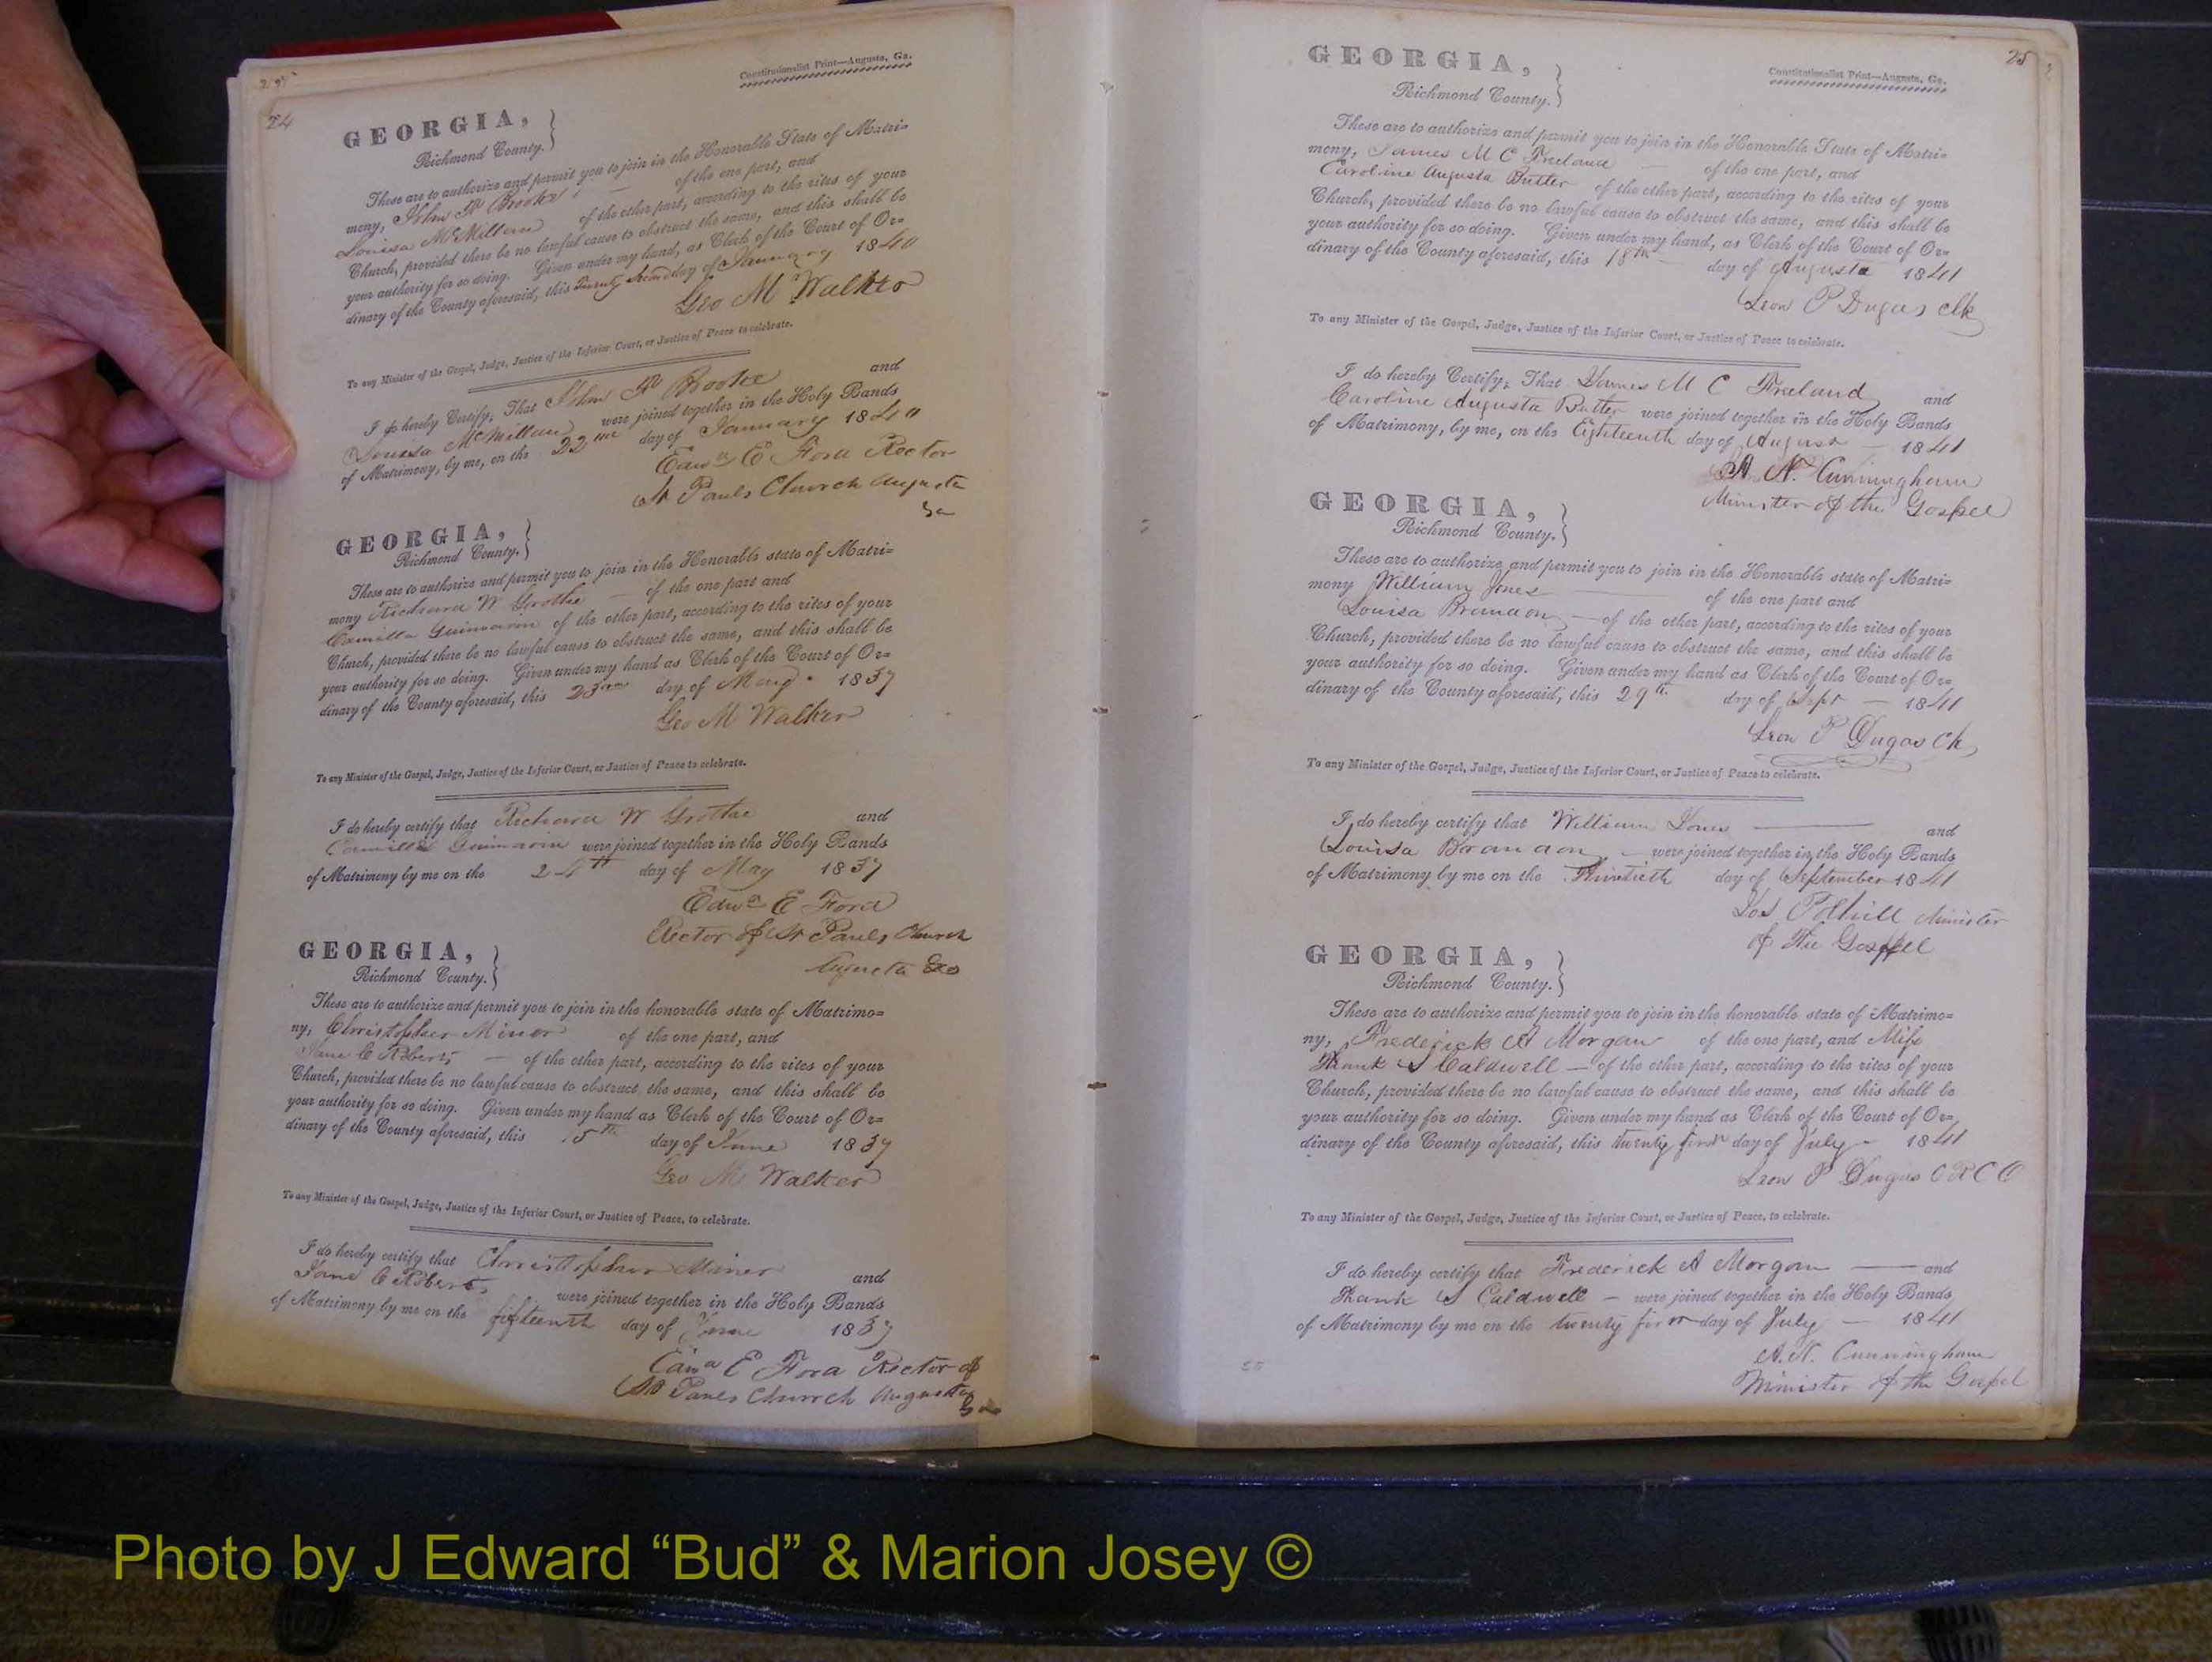 24
Constitutionalist Print—Augusta, Ga.
GEORGIA,
Richmond County.
These are to authorize and permit you to join in the Honorable State of Matri=
mony, John Brooke of the one part, and
Louisa McMillan of the other part, according to the rites of your
Church, provided there be no lawful cause to obstruct the same, and this shall be
your authority for so doing. Given under my hand, as Clerk of the Court of Or=
dinary of the County aforesaid, this Twenty Second day of January 1840
Geo M Walker
To any Minister of the Gospel, Judge, Justice of the Inferior Court, or Justice of Peace to celebrate.
I do hereby Certify, That John Brooke and
Louisa McMillan were joined together in the Holy Bands
of Matrimony, by me, on the 22nd day of January 1840
Edwd E Ford Rector
St Pauls Church Augusta
Ga
GEORGIA,
Richmond County.
These are to authorize and permit you to join in the Honorable state of Matri=
mony Richard W Grothe of the one part and
Camilla of the other part, according to the rites of your
Church, provided there be no lawful cause to obstruct the same, and this shall be
your authority for so doing. Given under my hand as Clerk of the Court of Or=
dinary of the County aforesaid, this 23rd day of May 1837
Geo M Walker
To any Minister of the Gospel, Judge, Justice of the Inferior Court, or Justice of Peace to celebrate.
I do hereby certify that Richard W Grothe and
Camilla were joined together in the Holy Bands
of Matrimony by me on the 24th day of May 1837
Edwd E Ford
Rector of St Pauls Church
Augusta Geo
GEORGIA,
Richmond County.
These are to authorize and permit you to join in the honorable state of Matrimo=
ny, Christopher Miner of the one part, and
Jane C Roberts of the other part, according to the rites of your
Church, provided there be no lawful cause to obstruct the same, and this shall be
your authority for so doing. Given under my hand as Clerk of the Court of Or=
dinary of the County aforesaid, this 15th day of June 1837
Geo M Walker
To any Minister of the Gospel, Judge, Justice of the Inferior Court, or Justice of Peace, to celebrate.
I do hereby certify that Christopher Miner and
Jane C Roberts were joined together in the Holy Bands
of Matrimony by me on the fifteenth day of June 1837
Edwd E Ford Rector of
St Pauls Church Augusta
Ga
25
Constitutionalist Print—Augusta, Ga.
GEORGIA,
Richmond County.
These are to authorize and permit you to join in the Honorable State of Matri=
mony, James M C Freeland of the one part, and
Caroline Augusta Butler of the other part, according to the rites of your
Church, provided there be no lawful cause to obstruct the same, and this shall be
your authority for so doing. Given under my hand, as Clerk of the Court of Or=
dinary of the County aforesaid, this 18th day of Augusta 1841
Leon P Dugas clk
To any Minister of the Gospel, Judge, Justice of the Inferior Court, or Justice of Peace to celebrate.
I do hereby Certify, That James M C Freeland and
Caroline Augusta Butler were joined together in the Holy Bands
of Matrimony, by me, on the Eighteenth day of August 1841
A. N. Cunningham
Minister of the Gospel
GEORGIA,
Richmond County.
These are to authorize and permit you to join in the Honorable state of Matri=
mony William Jones of the one part and
Louisa Brandon of the other part, according to the rites of your
Church, provided there be no lawful cause to obstruct the same, and this shall be
your authority for so doing. Given under my hand as Clerk of the Court of Or=
dinary of the County aforesaid, this 29th day of Sept 1841
Leon P Dugas Clk
To any Minister of the Gospel, Judge, Justice of the Inferior Court, or Justice of Peace to celebrate.
I do hereby certify that William Jones and
Louisa Brandon were joined together in the Holy Bands
of Matrimony by me on the Thirtieth day of September 1841
Jos Polhill Minister
of the Gospel
GEORGIA,
Richmond County.
These are to authorize and permit you to join in the honorable state of Matrimo=
ny, Frederick A Morgan of the one part, and Miss
S Caldwell of the other part, according to the rites of your
Church, provided there be no lawful cause to obstruct the same, and this shall be
your authority for so doing. Given under my hand as Clerk of the Court of Or=
dinary of the County aforesaid, this twenty first day of July 1841
Leon P Dugas C R C O
To any Minister of the Gospel, Judge, Justice of the Inferior Court, or Justice of Peace, to celebrate.
I do hereby certify that Frederick A Morgan and
S Caldwell were joined together in the Holy Bands
of Matrimony by me on the twenty first day of July 1841
A. N. Cunningham
Minister of the Gospel
25
Photo by J Edward “Bud” & Marion Josey ©